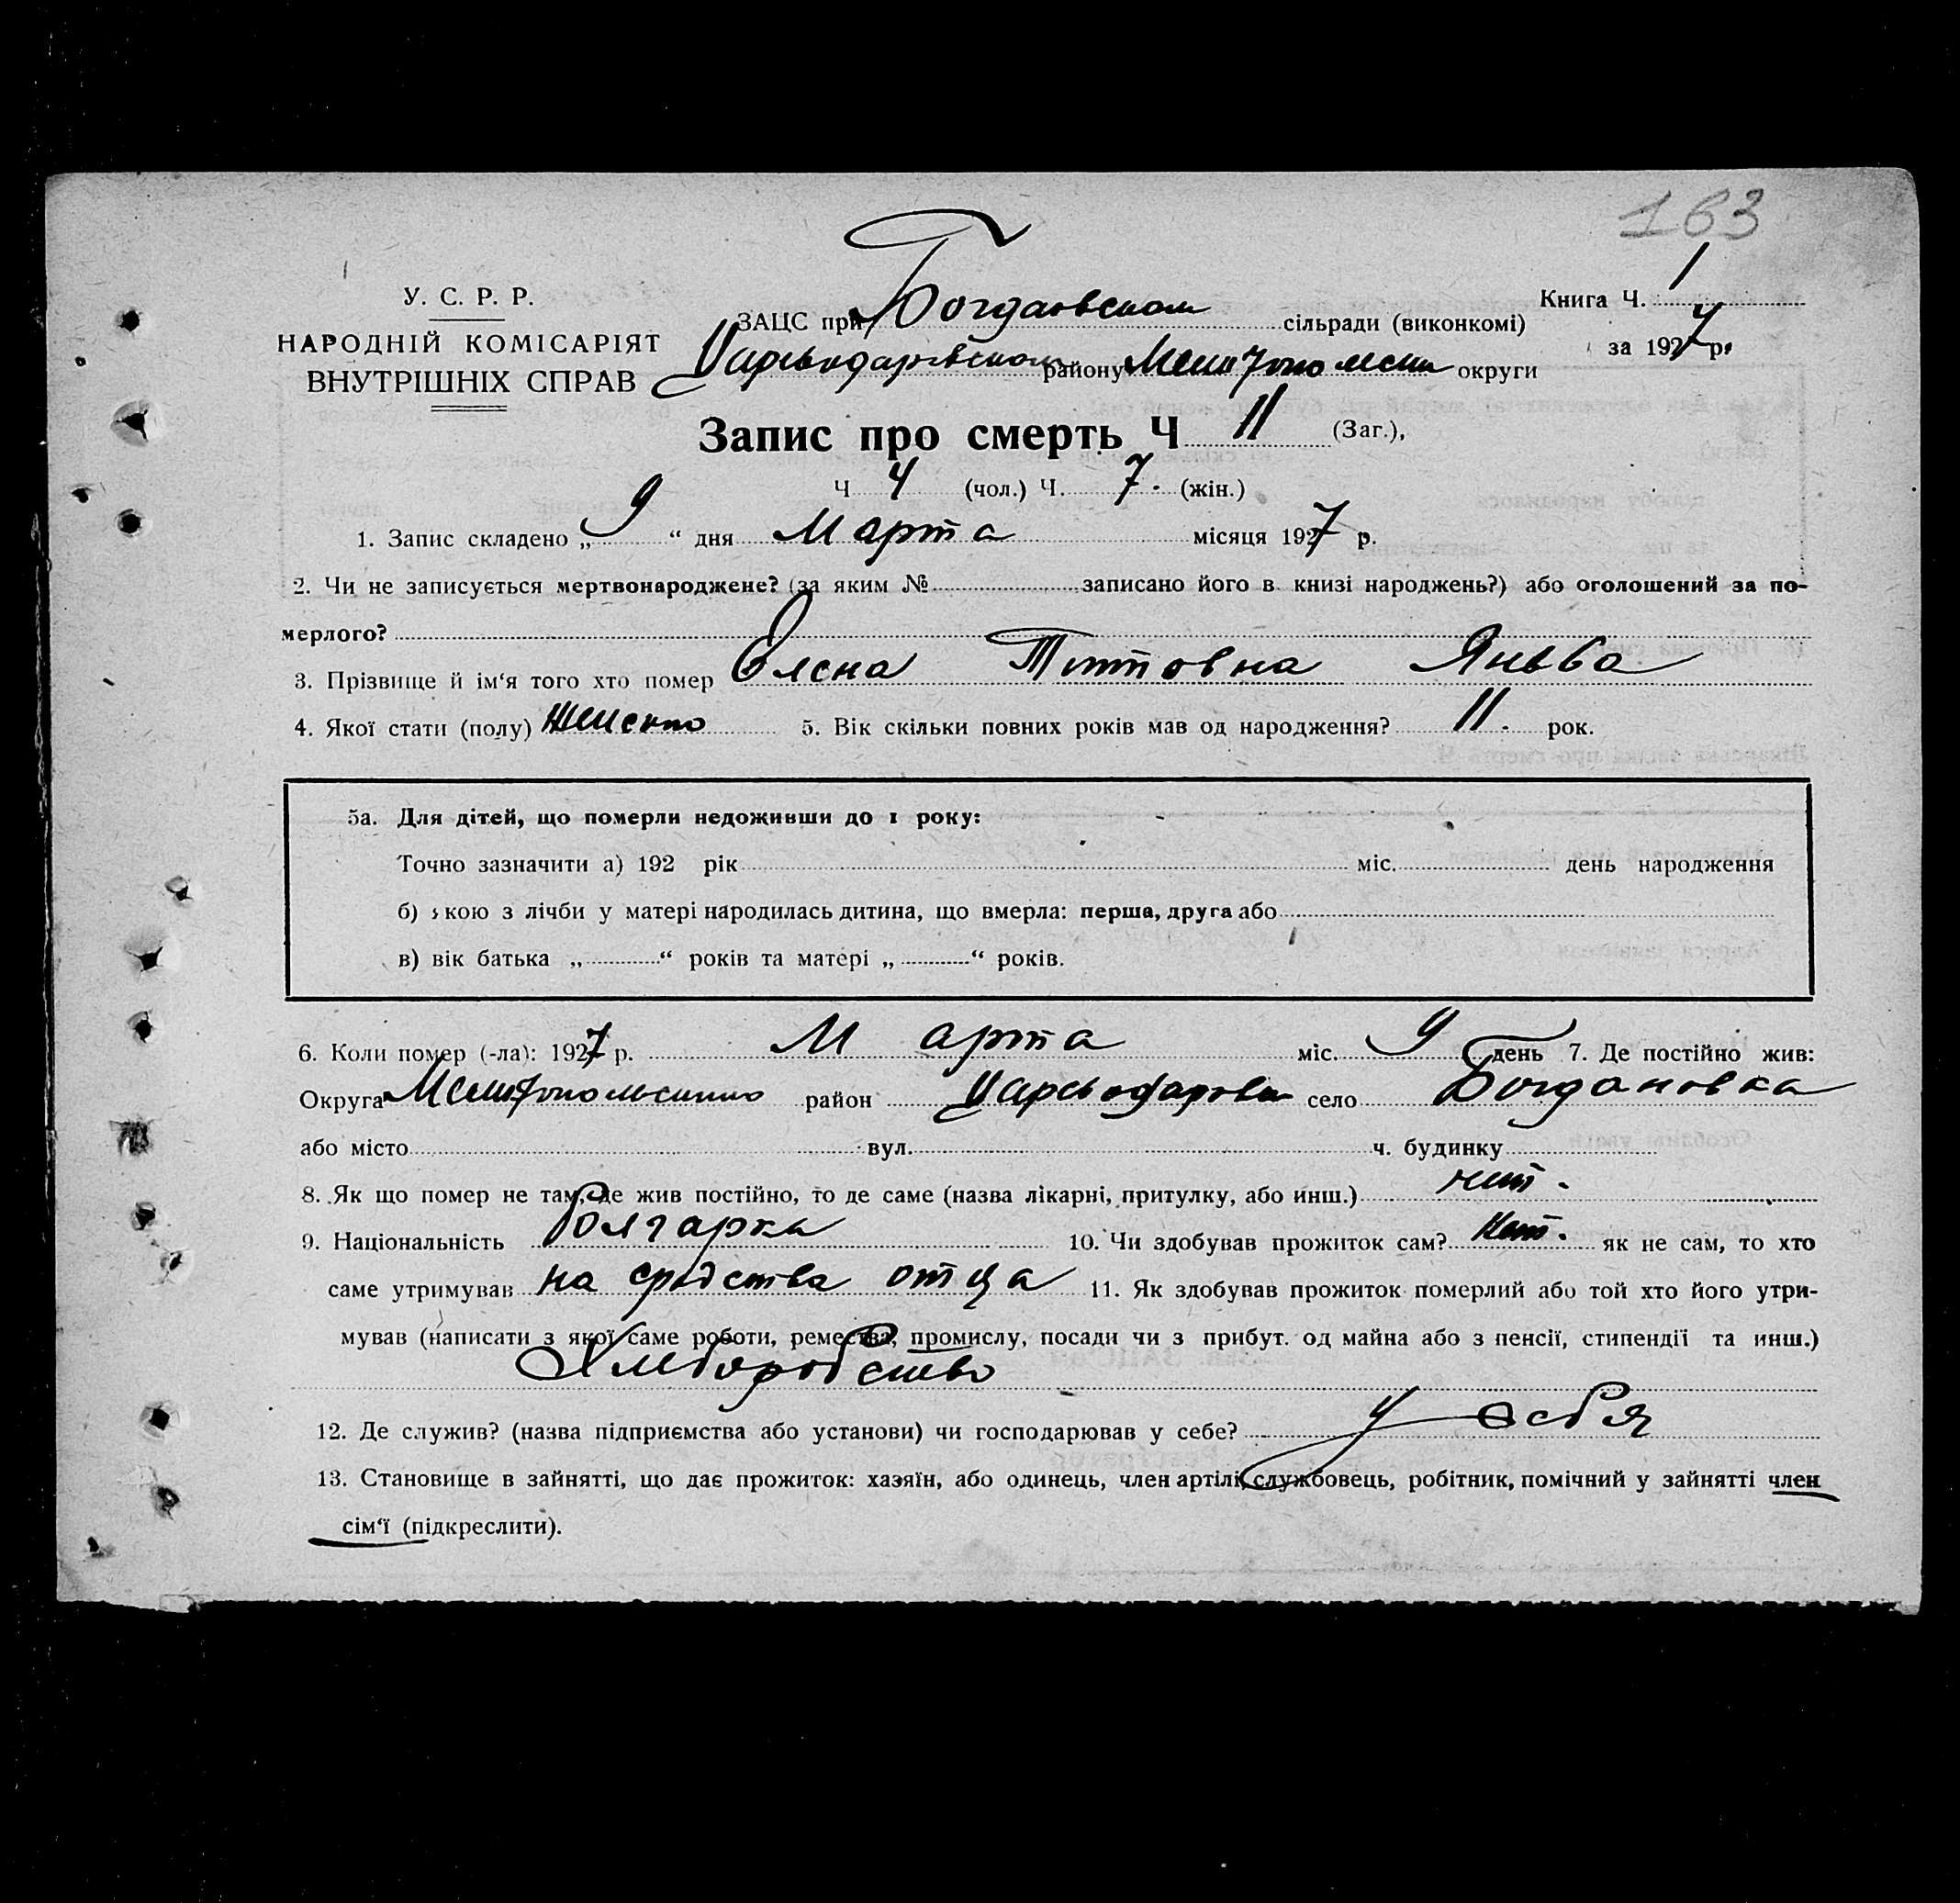 163
У. С. Р. Р.
НАРОДНІЙ КОМІСАРІЯТ
ВНУТРІШНІХ СПРАВ
ЗАЦС при Богдановском сільради (виконкомі)
району округи
Книга Ч. 1
за 1927 р.
Запис про смерть Ч 11 (Заг.),
Ч 4 (чол.) Ч. 7. (жін.)
1. Запис складено „ 9 “ дня Марта місяця 1927 р.
2. Чи не записується мертвонароджене? (за яким № записано його в книзі народжень?) або оголошений за по-
мерлого?
3. Прізвище й ім‘я того хто помер Олена Титовна
4. Якої стати (полу) 5. Вік скільки повних років мав од народження? 11. рок.
5а. Для дітей, що померли недоживши до 1 року:
Точно зазначити а) 192 рік міс. день народження
б) якою з лічби у матері народилась дитина, що вмерла: перша, друга або
в) вік батька „ “ років та матері „ “ років.
6. Коли помер (-ла): 1927 р. Марта міс. 9 день 7. Де постійно жив:
Округа район село Богдановка
або місто вул. ч. будинку
8. Як що помер не там, де жив постійно, то де саме (назва лікарні, притулку, або инш.) нет.
9. Національність Болгарка 10. Чи здобував прожиток сам? Нет. як не сам, то хто
саме утримував на средства отца 11. Як здобував прожиток померлий або той хто його утри-
мував (написати з якої саме роботи, ремества, промислу, посади чи з прибут. од майна або з пенсії, стипендії та инш.)
Хлеборобство
12. Де служив? (назва підприємства або установи) чи господарював у себе? У себя
13. Становище в зайнятті, що дає прожиток: хазяїн, або одинець, член артілі, службовець, робітник, помічний у зайнятті член
сім‘ї (підкреслити).